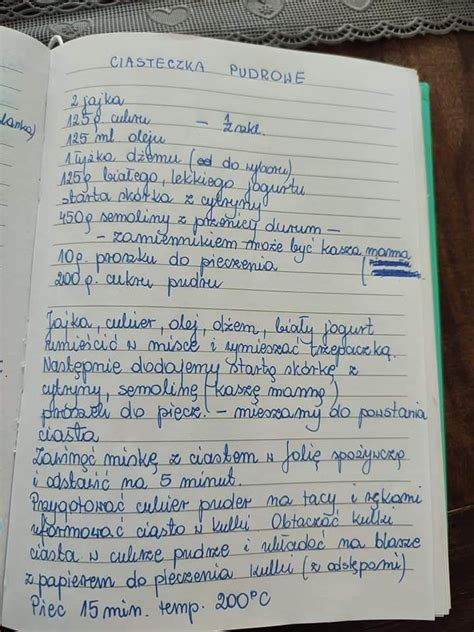 CIASTECZKA PUDROWE
2 jajka
125g cukru - 1/2 szkl.
125 ml oleju
1 łyżka dżemu (do wyboru)
125g białego, lekkiego jogurtu
starta skórka z cytryny
450g semoliny z pszenicy durum -
- zamiennikiem może być kasza manna
10g. proszku do pieczenia
200g. cukru pudru
Jajka, cukier, olej, dżem, biały jogurt
umieścić w misce i wymieszać trzepaczką.
Następnie dodajemy startą skórkę z
cytryny, semolinę (kaszę mannę)
proszek do piecz. - mieszamy do powstania
ciasta
Zawinąć miskę z ciastem w folię spożywczą
i odstawić na 5 minut.
Przygotować cukier puder na tacy i rękami
uformować ciasto w kulki Obtaczać kulki
ciasta w cukrze pudrze i układać na blasze
z papierem do pieczenia kulki (z odstępami)
Piec 15 min. temp. 200°C